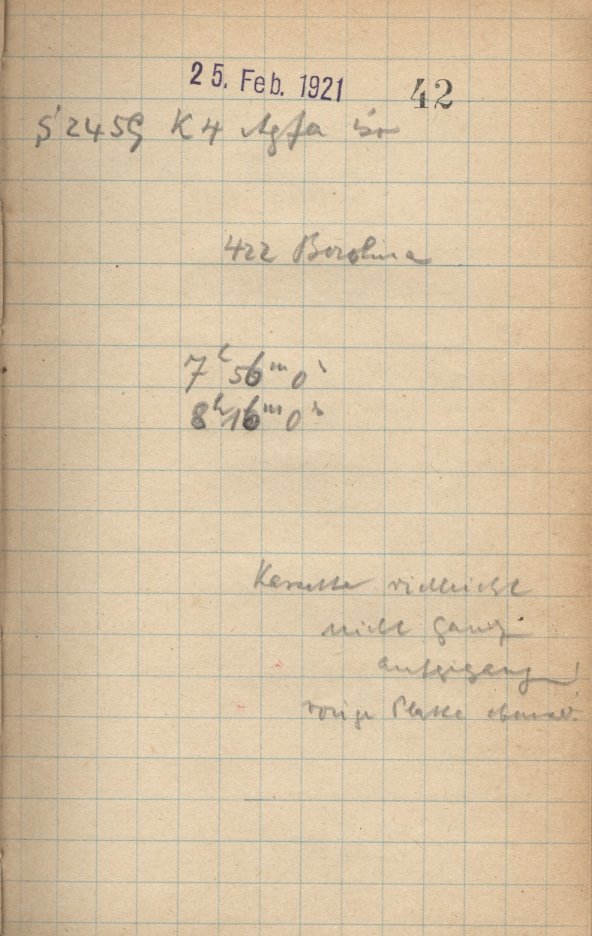 25. Feb. 1921 42
S 2459 K4 Agfa
422 Berolina
7h 56m 0s
8h 16m 0s
Kassette vielleicht
nicht ganz
aufgegangen!
vorige Platte ebenso.